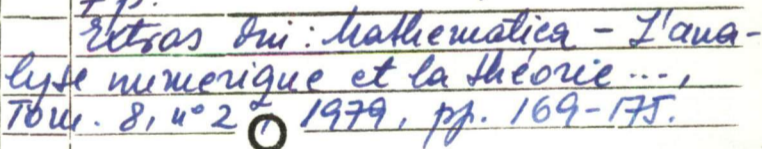 Extras din: Mathematica - L'ana-
lyse numerique et la théorie ...,
Tom. 8, nº 2, 1979, pp. 169-175.